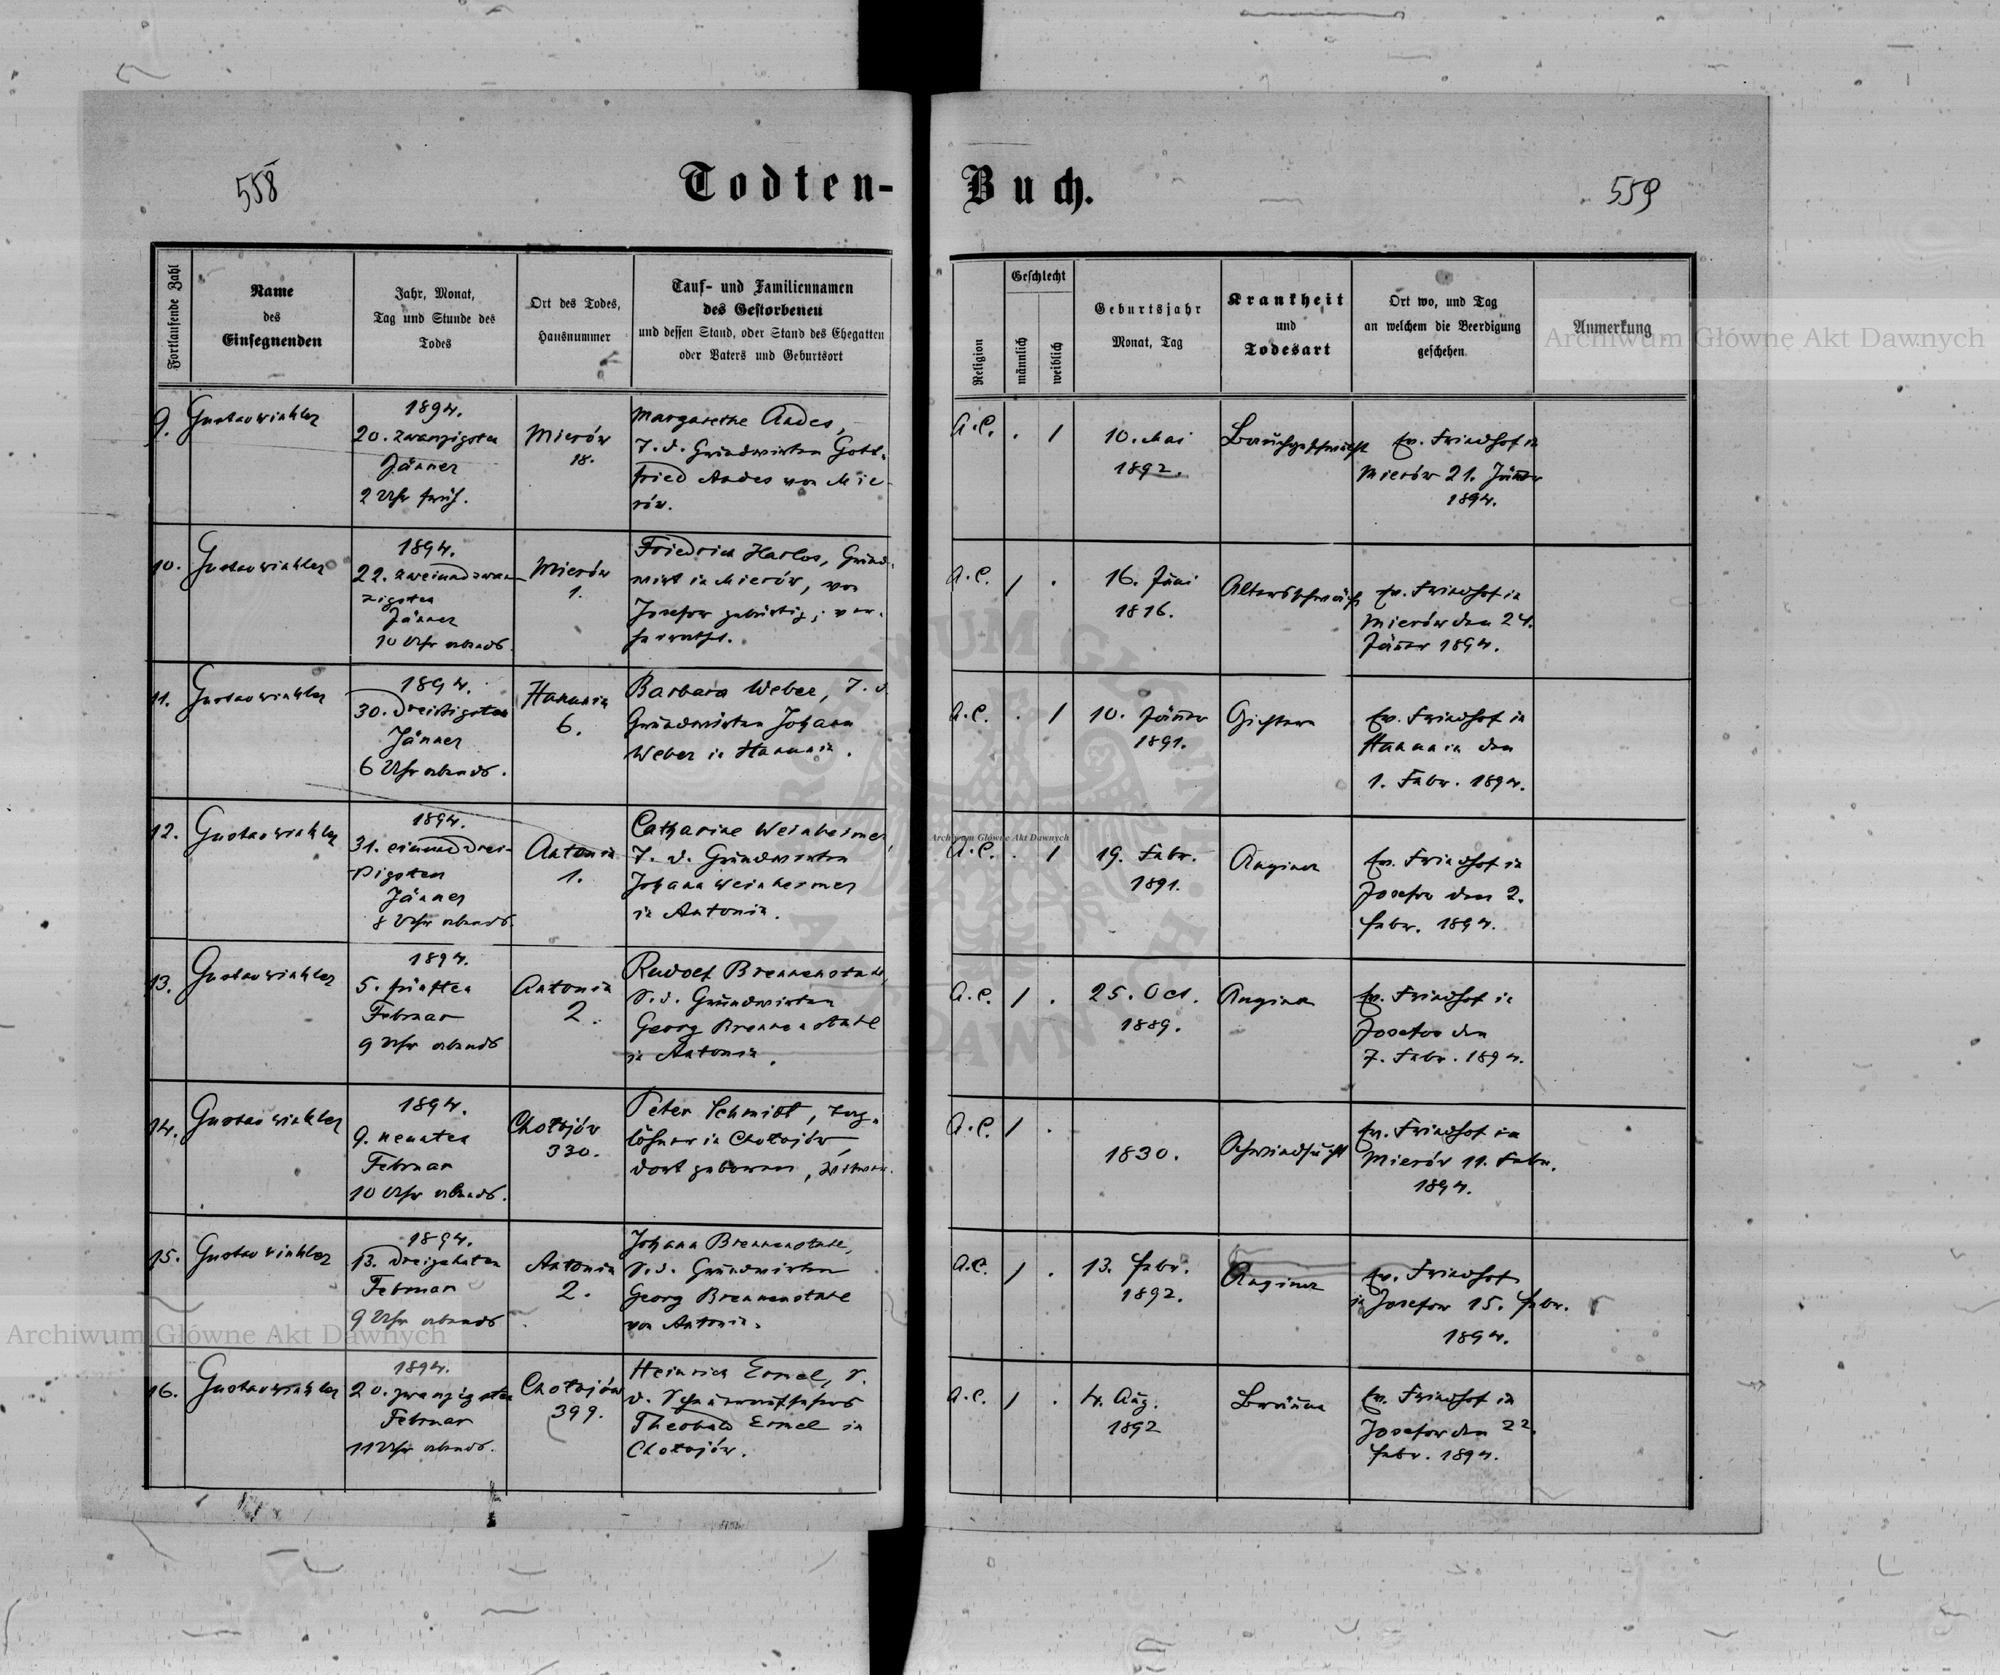 558
Todten-
Buch.
559
Fortlaufende Zahl
Name
des
Einsegnenden
Jahr, Monat,
Tag und Stunde des
Todes
Ort des Todes,
Hausnummer
Tauf- und Familiennamen
des Gestorbenen
und dessen Stand, oder Stand des Ehegatten
oder Vaters und Geburtsort
Religion
Geschlecht
männlich
weiblich
Geburtsjahr
Monat, Tag
Krankheit
und
Todesart
Ort wo, und Tag
an welchem die Beerdigung
geschehen
Anmerkung
9.
Gustav Winkler
1894.
20. zwanzigsten
Jänner
2 Uhr früh.
Mierów
18.
Margarethe Andes,
T. d. Grundwirten Gott-
fried Andes von Mie-
rów.
A.C.
.
1
10. Mai
1892.
Ev. Friedhof in
Mierów 21. Jänner
1894.
10.
Gustav Winkler
1894.
22. zweiundzwan-
zigsten
Jänner
10 Uhr abends.
Mierów
1.
Friedrich Harlos, Grund-
wirt in Mierów, von
Josefow gebürtig, ver-
heiratht.
A.C.
1
.
16. Juni
1816.
Altersschwäche
Ev. Friedhof in
Mierów den 24.
Jänner 1894.
11.
Gustav Winkler
1894.
30. dreißigsten
Jänner
6 Uhr abends.
Hanunin
6.
Barbara Weber, T. d.
Grundwirten Johann
Weber in Hanunin.
A.C.
.
1
10. Jänner
1891.
Gichtern
Ev. Friedhof in
Hanunin den
1. Febr. 1894.
12.
Gustav Winkler
1894.
31. einunddrei-
ßigsten
Jänner
8 Uhr abends.
Antonin
1.
Catharine Weinheimer,
T. d. Grundwirten
Johann Weinheimer
in Antonin.
A.C.
.
1
19. Febr.
1891.
Angina
Ev. Friedhof in
Josefow den 2.
Febr. 1894.
13.
Gustav Winkler
1894.
5. fünften
Februar
9 Uhr abends
Antonin
2.
Rudolf Brennenstuhl,
S. d. Grundwirten
Georg Brennenstuhl
in Antonin.
A.C.
1
.
25. Oct.
1889.
Angina
Ev. Friedhof in
Josefow den
7. Febr. 1894.
14.
Gustav Winkler
1894.
9. neunten
Februar
10 Uhr abends.
Chołojów
330.
Peter Schmidt, Tag-
löhner in Chołojów,
dort geboren, Witwer.
A.C.
1
.
1830.
Schwindsucht
Ev. Friedhof in
Mierów 11. Febr.
1894.
15.
Gustav Winkler
1894.
13. dreizehnten
Februar
9 Uhr abends
Antonin
2.
Johann Brennenstuhl,
S. d. Grundwirten
Georg Brennenstuhl
von Antonin.
A.C.
1
.
13. Febr.
1892.
Angina
Ev. Friedhof
in Josefow 15. Febr.
1894.
16.
Gustav Winkler
1894.
20. zwanzigsten
Februar
11 Uhr abends.
Chołojów
399.
Heinrich Ernel, S.
d.
Theobald Ernel in
Chołojów.
A.C.
1
.
4. Aug.
1892
Bräune
Ev. Friedhof in
Josefow den 22.
Febr. 1894.
Archiwum Główne Akt Dawnych
Archiwum Główne Akt Dawnych
Archiwum Główne Akt Dawnych
ARCHIWUM GŁÓWNE AKT DAWNYCH